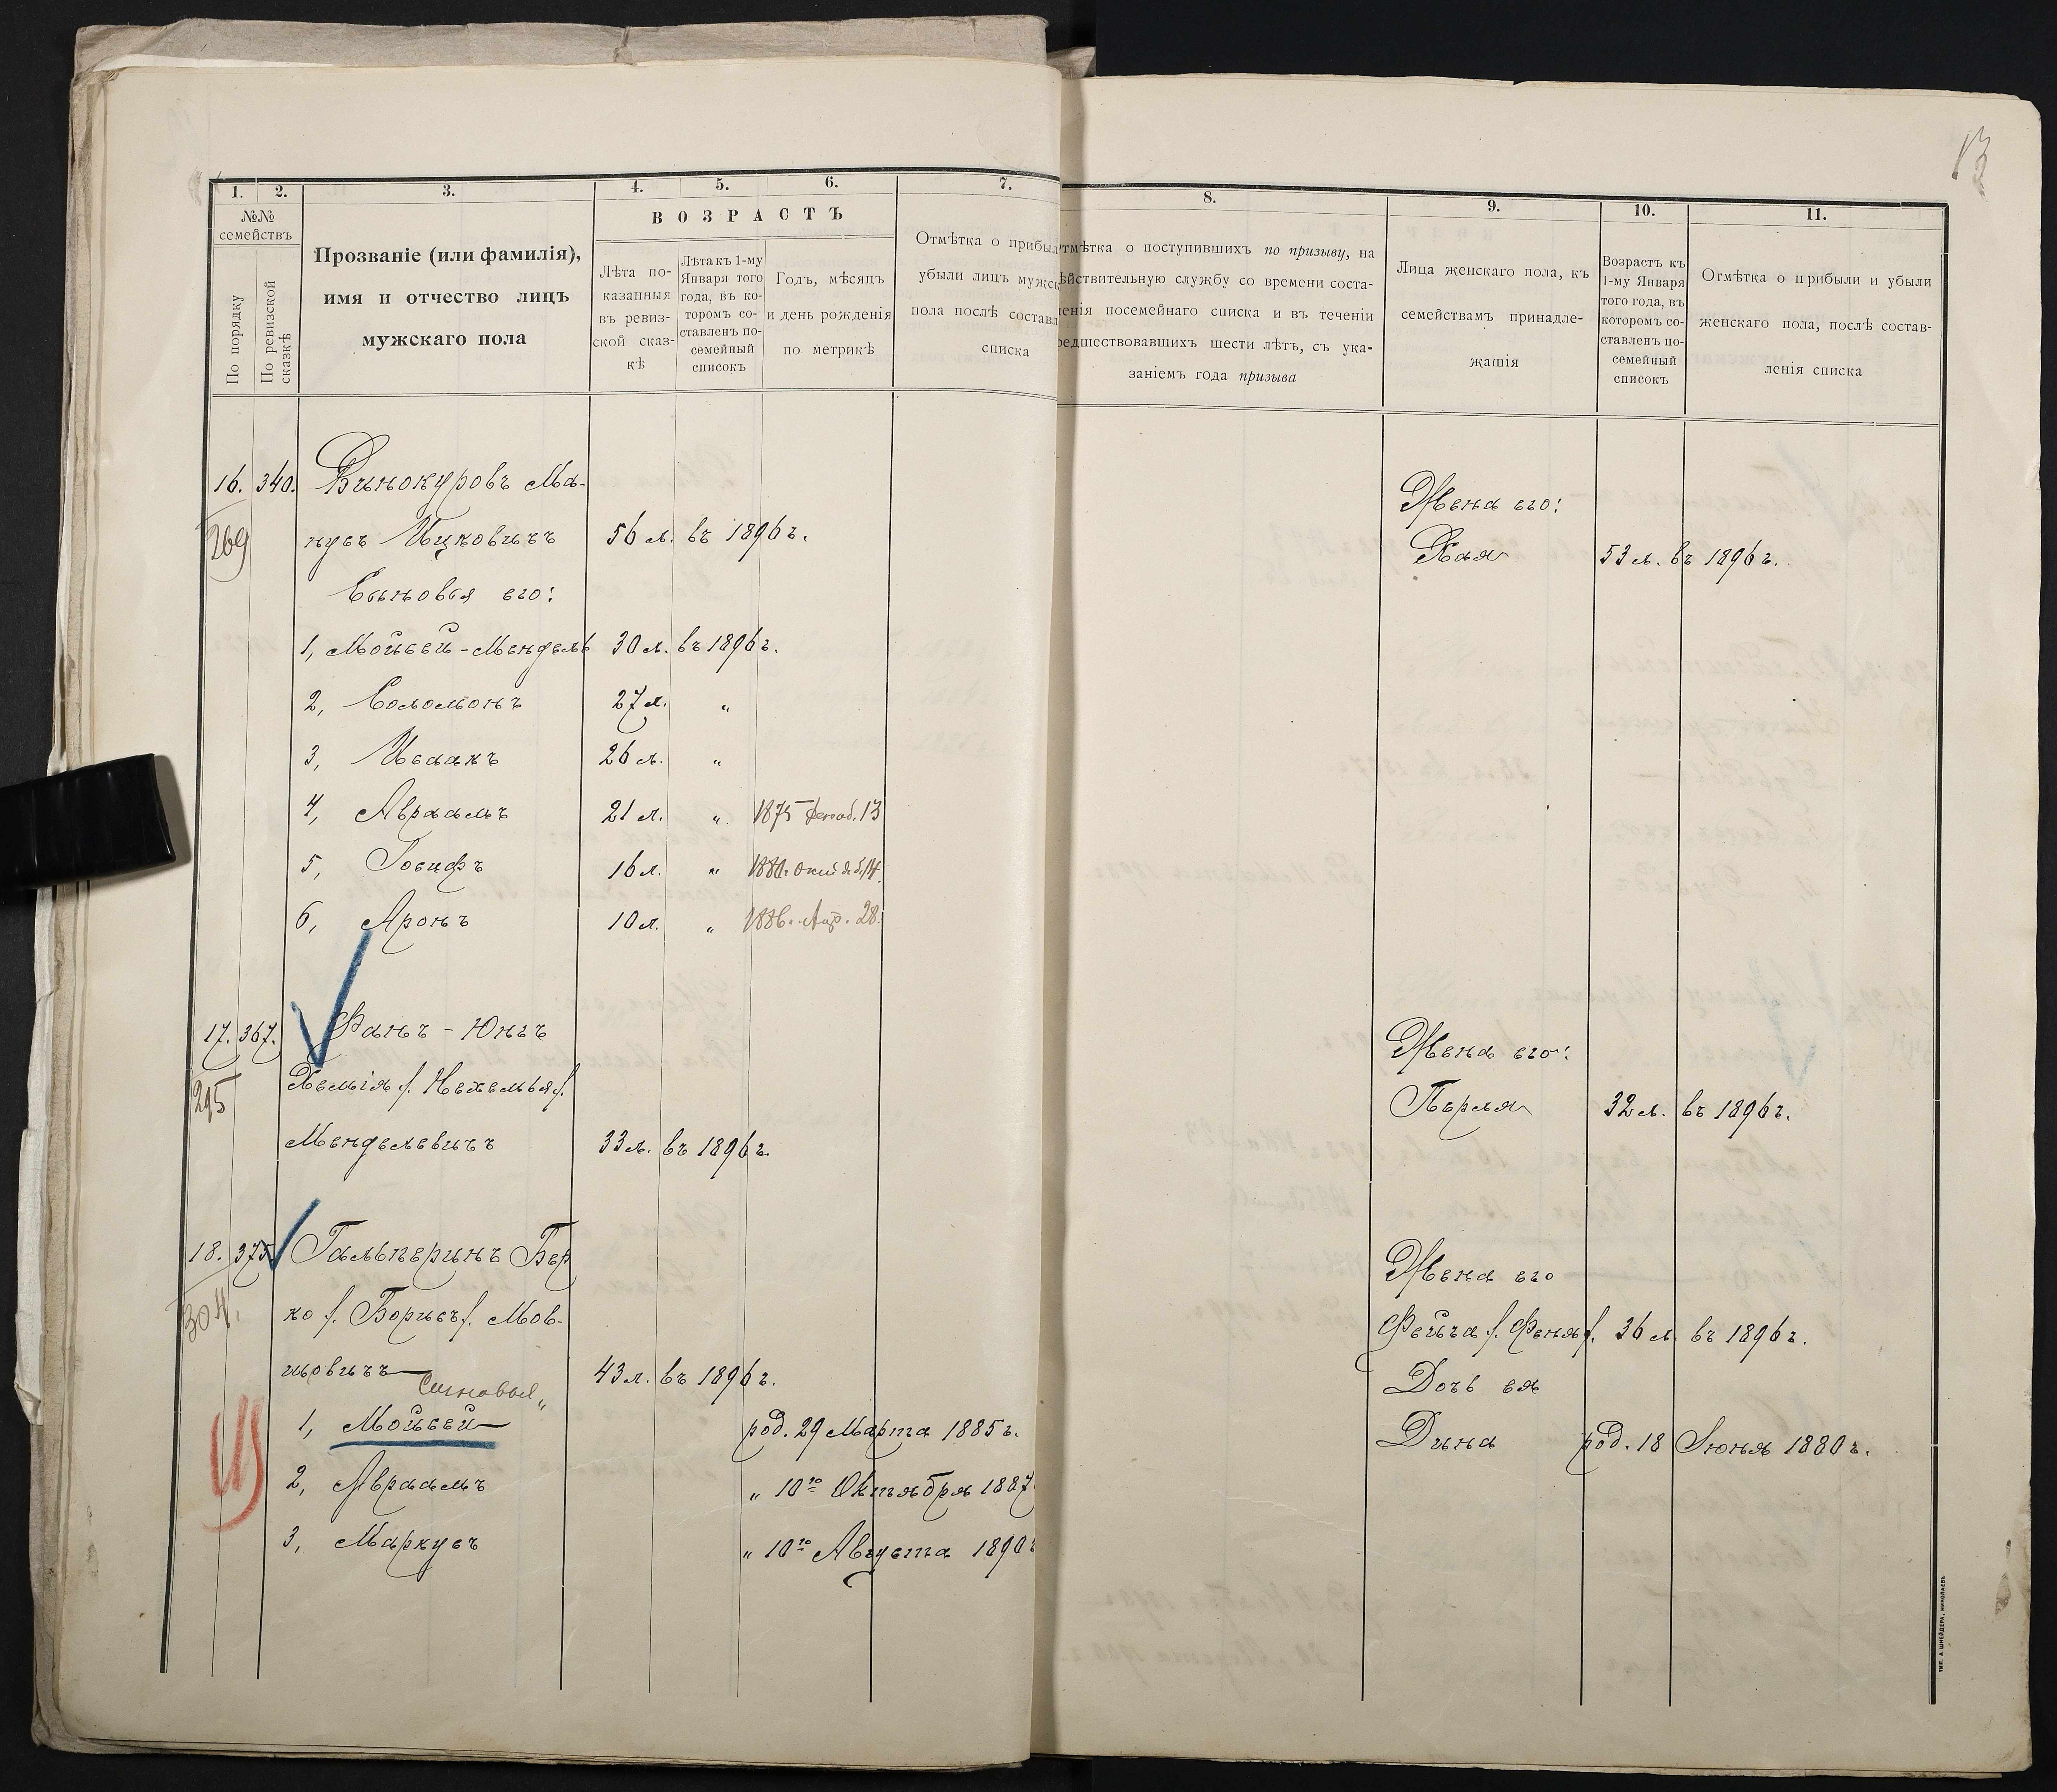 13
1. 2. 3. 4. 5. 6. 7.
№№ семействъ
По порядку
По ревизской сказкѣ
Прозваніе (или фамилія),
имя и отчество лицъ
мужскаго пола
ВОЗРАСТЪ
Лѣта по-
казанныя
въ ревиз-
ской сказ-
кѣ
Лѣта къ 1-му
Января того
года, въ ко-
торомъ со-
ставленъ по-
семейный
списокъ
Годъ, мѣсяцъ
и день рожденія
по метрикѣ
Отмѣтка о прибыл
убыли лицъ мужск
пола послѣ составл
списка
8. 9. 10. 11.
тмѣтка о поступившихъ по призыву, на
ѣйствительную службу со времени соста-
енія посемейнаго списка и въ теченіи
редшествовавшихъ шести лѣтъ, съ ука-
заніемъ года призыва
Лица женскаго пола, къ
семействамъ принадле-
жащія
Возрастъ къ
1-му Января
того года, въ
которомъ со-
ставленъ по-
семейный
списокъ
Отмѣтка о прибыли и убыли
женскаго пола, послѣ состав-
ленія списка
16. 340. Винокуровъ Ма-
269 нусъ Ицковичъ 56 л. въ 1896 г.
Сыновья его:
1, Мойсей-Мендель 30 л. въ 1896 г.
2, Соломонъ 27 л. "
3, Исаакъ 26 л. "
4, Авраамъ 21 л. " 1875 13
5, Іосифъ 16 л. " 1880. Октяб. 14
6, Аронъ 10 л. " 1886. Апр. 28.
Жена его:
Хая 53 л. въ 1896 г.
17. 367. Фанъ-Юнгъ
295 Хемія /. Нехемья /.
Менделевичъ 33 л. въ 1896 г.
Жена его:
Перля 32 л. въ 1896 г.
18. 375 Гальперинъ Бер
304. ко /. Борисъ /. Мов-
шовичъ 43 л. въ 1896 г.
Сыновья "
1, Мойсей род. 29 Марта 1885 г.
2, Авраамъ " 10го Октября 1887
3, Маркусъ " 10го Августа 1890 г
Жена его
Фейга /. Феня /. 36 л. въ 1896 г.
Дочь ея
Дина род. 18 Іюня 1880 г.
ТИП. А. ШНЕЙДЕРА, НИКОЛАЕВЪ